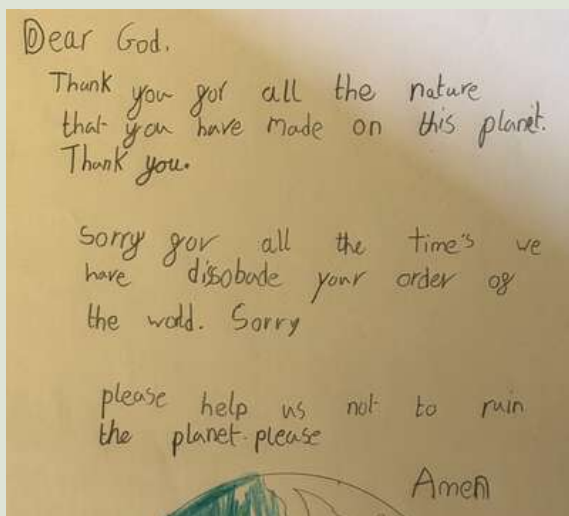 Dear God.
Thank you for all the nature
that you have made on this planet.
Thank you.
Sorry for all the time's we
have dissobade your order of
the wold. Sorry
please help us not to ruin
the planet. please
Amen